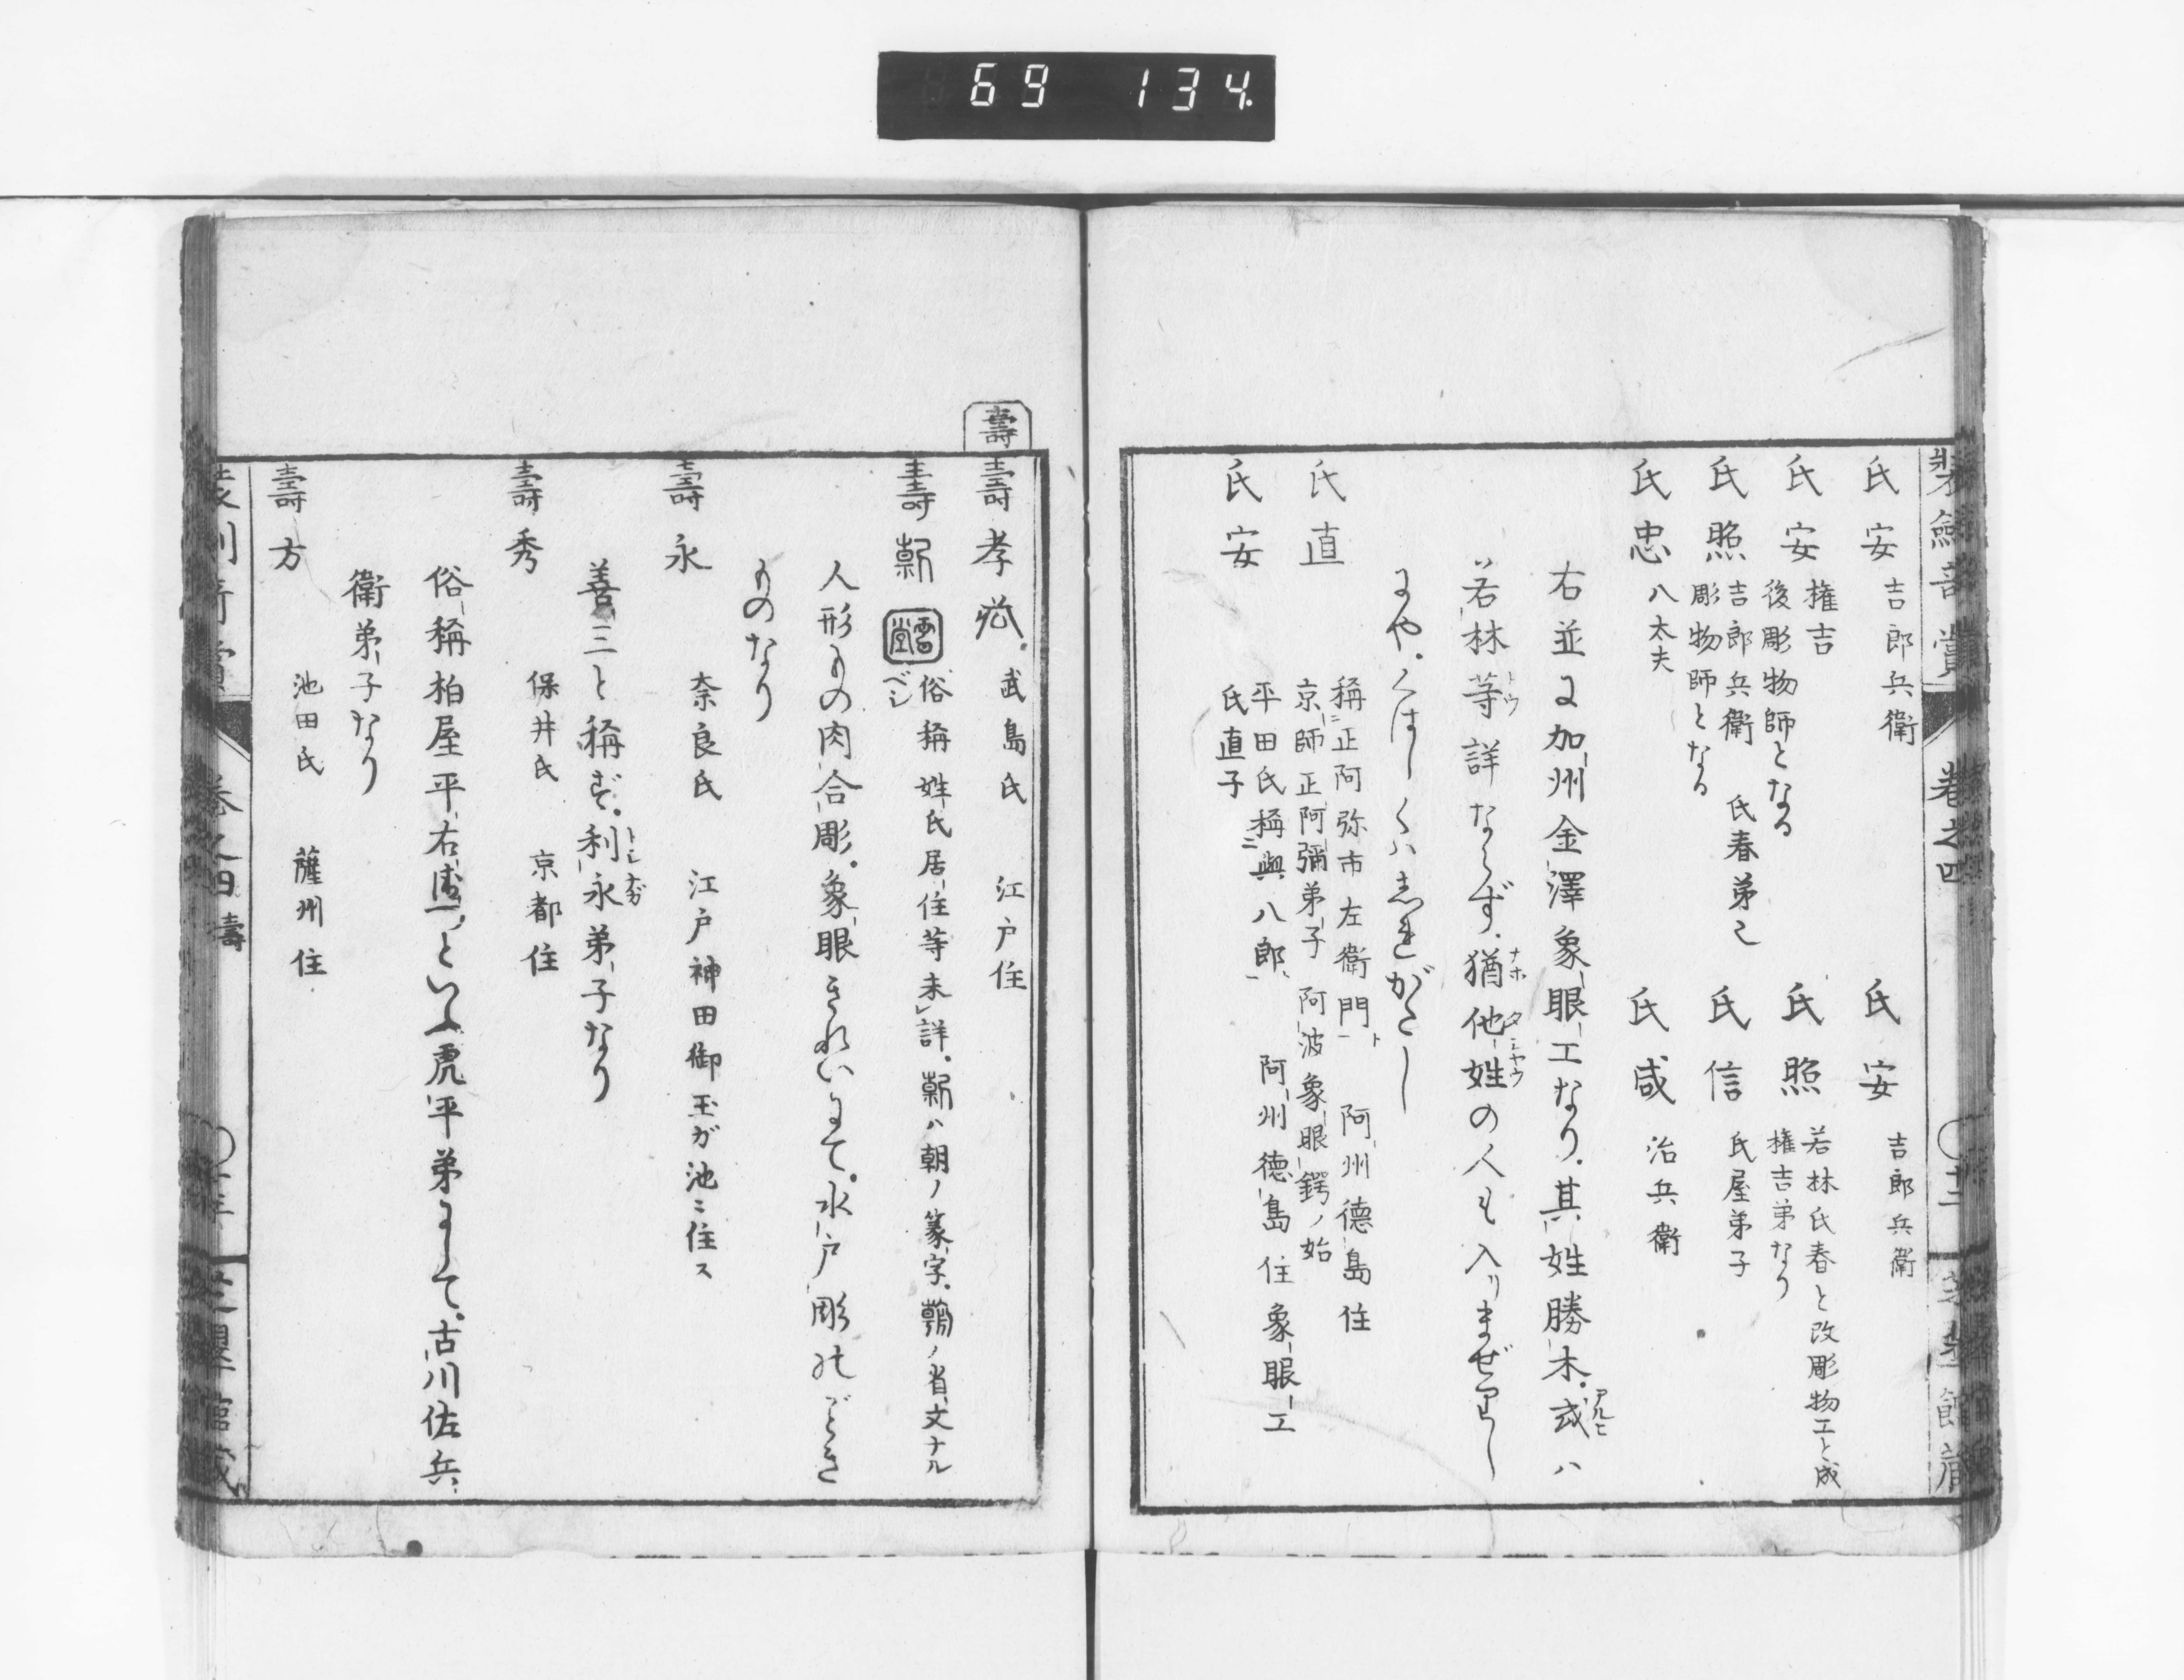 69 134
氏安 吉郎兵衛
氏安 吉郎兵衛
氏安 権吉
後彫物師となる
氏照 若林氏春と改彫物工と成
権吉弟なり
氏照 吉郎兵衛 氏春弟也
彫物師となる
氏信 氏屋弟子
氏忠 八太夫
氏咸 治兵衛
右並に加州金澤象眼工なり。其姓勝木。或ハ
若林等詳ならず。猶他姓の人も入りまぜ
にや。くはしくハしれがたし
氏直 稱正阿弥市左衛門ト 阿州德島住
京師正阿彌弟子 阿波象眼鍔ノ始
氏安 平田氏稱與八郎 阿州德島住象眼工
氏直子
壽
壽孝 武島氏 江戸住
壽 俗稱姓氏居住等未詳。ハ朝ノ篆字。ノ省文ナル
ベシ
人形もの肉合彫。象眼きれいにて。水戸彫のごとき
ものなり
壽永 奈良氏 江戸神田御玉が池ニ住ス
善三と稱ず。利永弟子なり
壽秀 保井氏 京都住
俗稱柏屋平右といふ虎平弟にして。古川佐兵
衛弟子なり
壽方 池田氏 薩州住
卷之四 壽